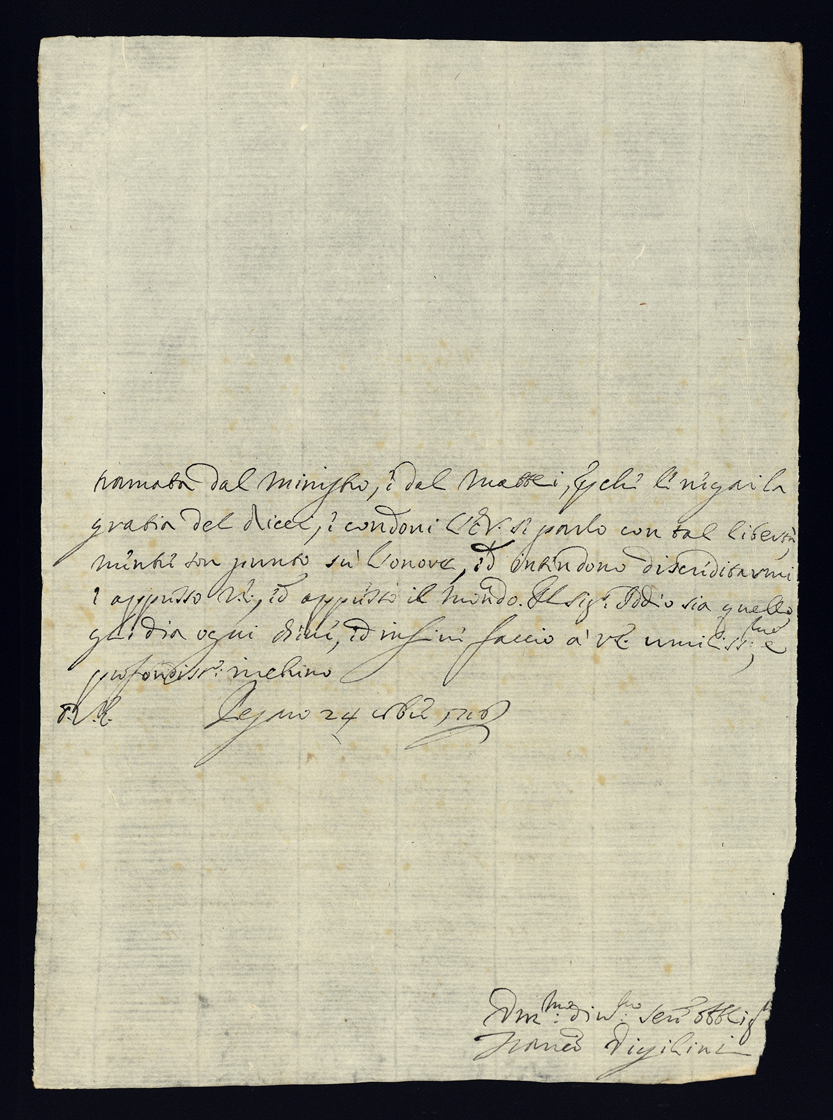 tramata dal Ministro, e dal Mattei, perche li negai la
gratia del Ricci, e condoni l'E.V. si parlo con tal libertà,
mentre son punto sù l'onore, ed intendono discreditarmi
e appresso V.E., ed appresso il Mondo. Il Sig.r Iddio sia quello
gli dia ogni bene, ed in fine faccio à V.E. umiliss.me, e
profondiss.e inchino
D. V. E. 24
Um.mo Div.mo Ser.e obblig
Franco